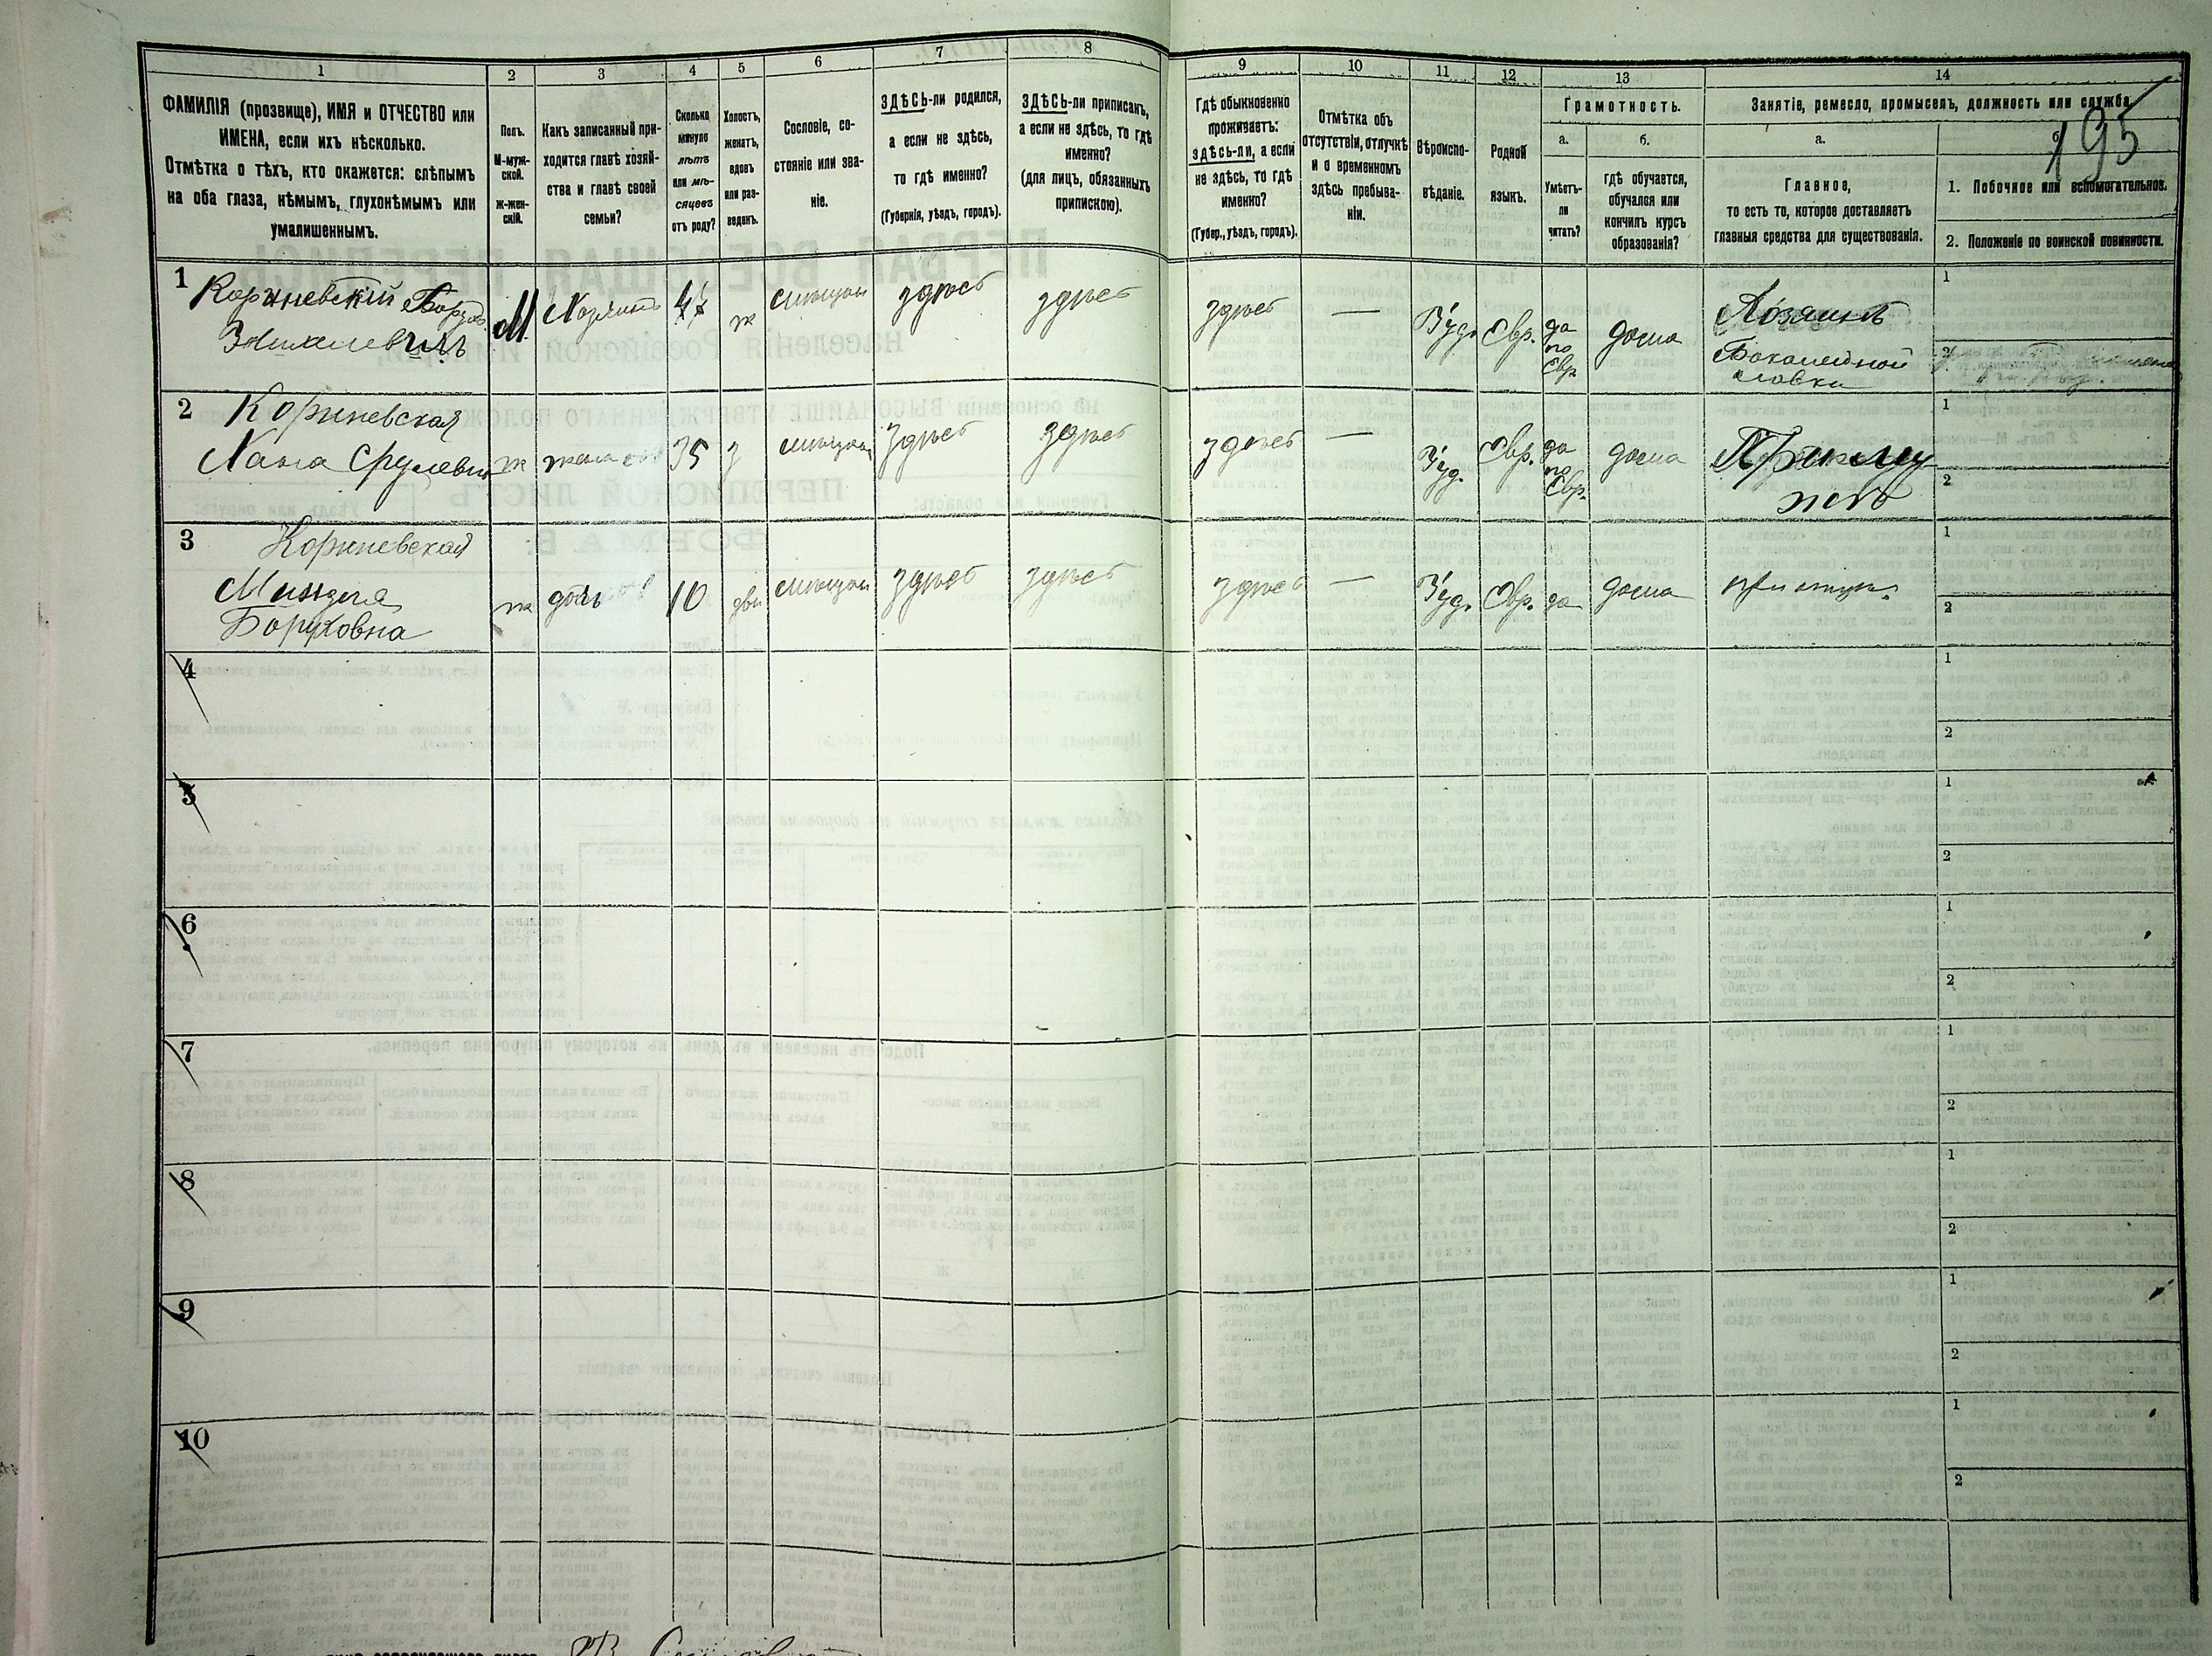 195
1
2
3
4
5
6
7
8
9
10
11
12
13
14
ФАМИЛІЯ (прозвище), ИМЯ и ОТЧЕСТВО или
ИМЕНА, если ихъ нѣсколько.
Отмѣтка о тѣхъ, кто окажется: слѣпымъ
на оба глаза, нѣмымъ, глухонѣмымъ или
умалишеннымъ.
Полъ.
М-муж-
ской.
Ж-жен-
скій.
Какъ записанный при-
ходится главѣ хозяй-
ства и главѣ своей
семьи?
Сколько
минуло
лѣтъ
или мѣ-
сяцевъ
отъ роду?
Холостъ,
женатъ,
вдовъ
или раз-
веденъ.
Сословіе, со-
стояніе или зва-
ніе.
ЗДѢСЬ-ли родился,
а если не здѣсь,
то гдѣ именно?
(Губернія, уѣздъ, городъ).
ЗДѢСЬ-ли приписанъ,
а если не здѣсь, то гдѣ
именно?
(для лицъ, обязанныхъ
припискою).
Гдѣ обыкновенно
проживаетъ:
здѣсь-ли, а если
не здѣсь, то гдѣ
именно?
(Губер., уѣздъ, городъ).
Отмѣтка объ
отсутствіи, отлучкѣ
и о временномъ
здѣсь пребыва-
ніи.
Вѣроиспо-
вѣданіе.
Родной
языкъ.
Грамотность.
а.
Умѣетъ-
ли
читать?
б.
гдѣ обучается,
обучался или
кончилъ курсъ
образованія?
Занятіе, ремесло, промыселъ, должность или служба.
а.
Главное,
то есть то, которое доставляетъ
главныя средства для существованія.
б.
1. Побочное или вспомогательное.
2. Положеніе по воинской повинности.
1
Коржневскій
М
Хозяинъ
47
ж
мѣщан
здѣсь
здѣсь
здѣсь
—
Іуд.
Евр.
да
по
Евр.
дома
Хозяинъ
Бакалейной
лавки
1
2
2
Коржневская
Хана Срулевна
ж
жена
35
з
мѣщан
здѣсь
здѣсь
здѣсь
—
Іуд.
Евр.
да
по
Евр.
дома
При му
жѣ
1
2
3
Коржневская
Миндля
Боруховна
ж
дочь
10
дѣв
мѣщан
здѣсь
здѣсь
здѣсь
—
Іуд.
Евр.
да
дома
при отцѣ
1
2
4
1
2
5
1
2
6
1
2
7
1
2
8
1
2
9
1
2
10
1
2